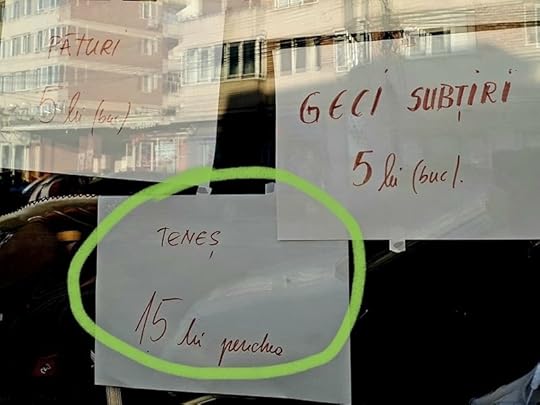 PĂTURI
5 lei (buc)
GECI SUBȚIRI
5 lei (buc).
TENEȘ
15 lei perechea